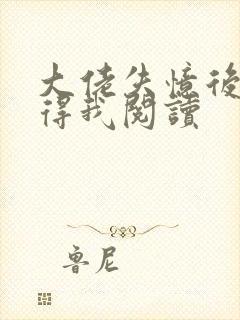 大佬失憶後
得我閱讀
魯尼